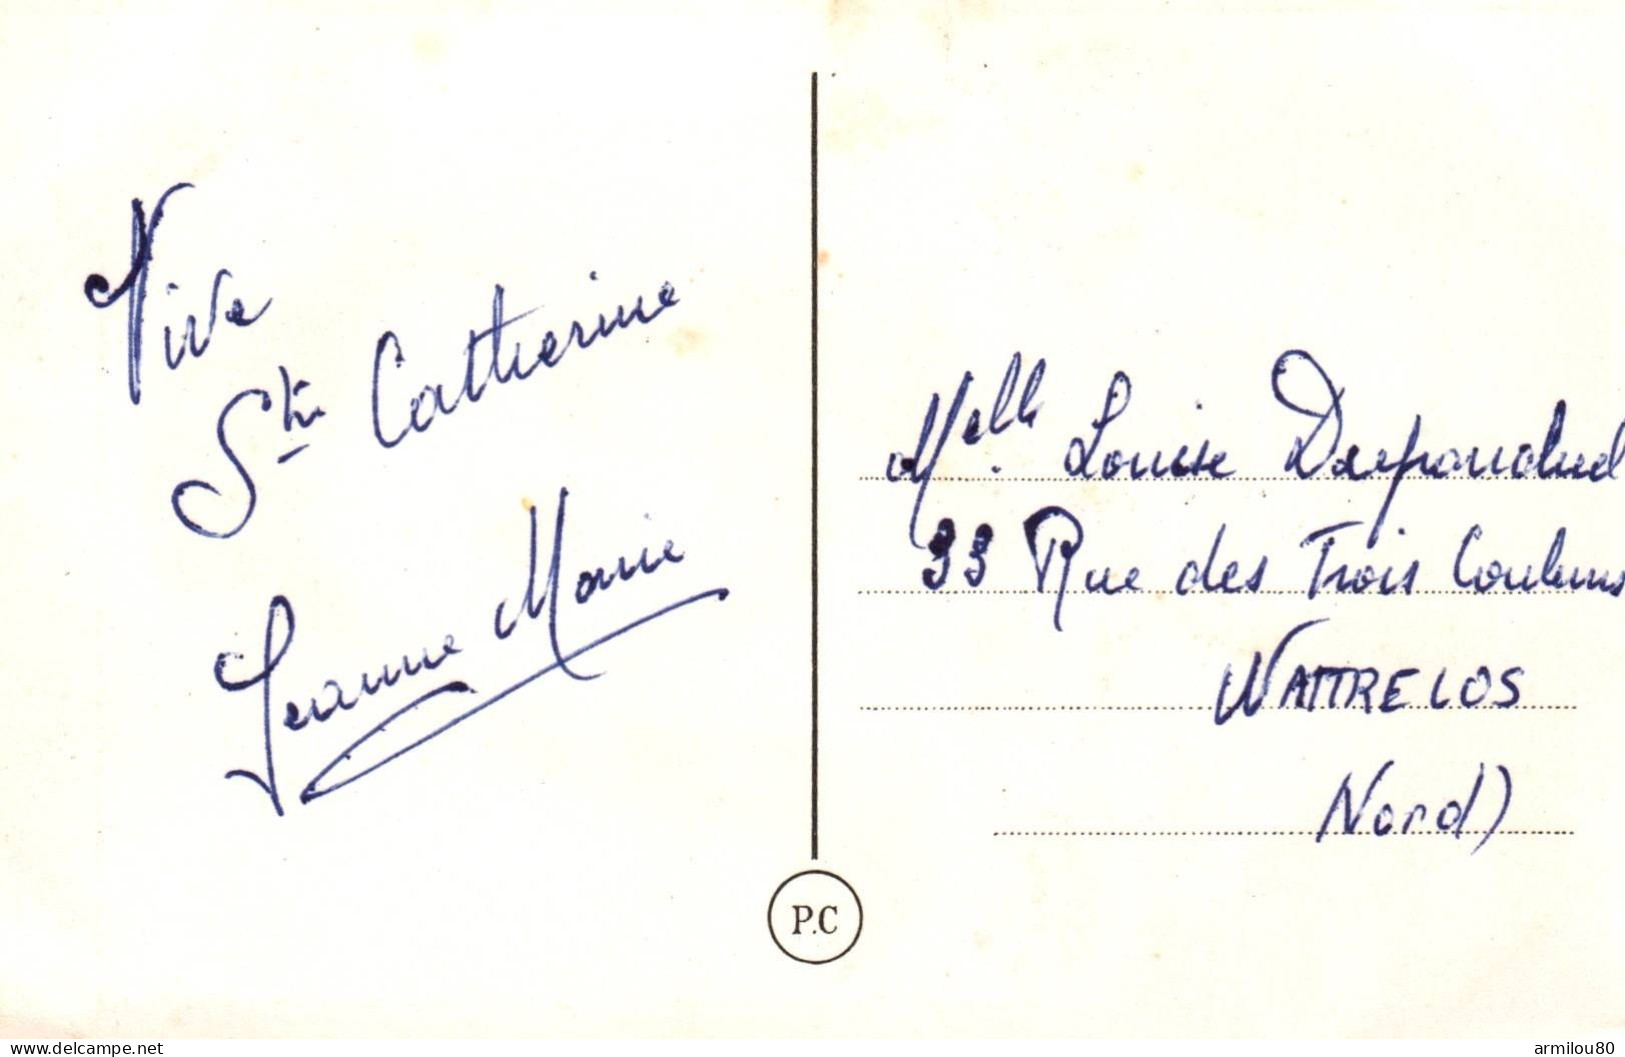 Vive
Ste Catherine
Jeanne Marie
Melle. Louise
33 Rue des Trois Couleurs
WATTRELOS
Nord)
P.C
www.delcampe.net
armilou80